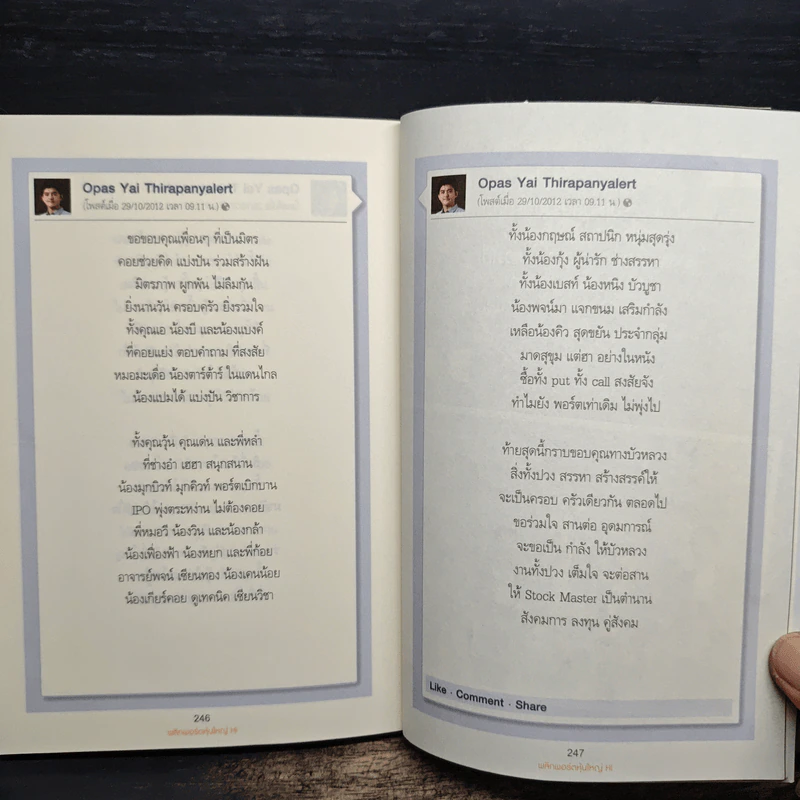 Opas Yai Thirapanyalert
(โพสต์เมื่อ 29/10/2012 เวลา 09.11 น.)
ขอขอบคุณเพื่อนๆ ที่เป็นมิตร
คอยช่วยคิด แบ่งปัน ร่วมสร้างฝัน
มิตรภาพ ผูกพัน ไม่ลืมกัน
ยิ่งนานวัน ครอบครัว ยิ่งรวมใจ
ทั้งคุณเอ น้องบี และน้องแบงค์
ที่คอยแย่ง ตอบคำถาม ที่สงสัย
หมอมะเดื่อ น้องตาร์ต้าร์ ในแดนไกล
น้องแปมได้ แบ่งปัน วิชาการ
ทั้งคุณวุ้น คุณเด่น และพี่หล่ำ
ที่ช่างอำ เฮฮา สนุกสนาน
น้องมุกบิวท์ มุกคิวท์ พอร์ตเบิกบาน
IPO พุ่งตระหง่าน ไม่ต้องคอย
พี่หมอวี น้องวิน และน้องกล้า
น้องเฟื่องฟ้า น้องหยก และพี่ก้อย
อาจารย์พจน์ เซียนทอง น้องเคนน้อย
น้องเกียร์คอย ดูเทคนิค เซียนวิชา
246
พลิกพอร์ตหุ้นใหญ่
Opas Yai Thirapanyalert
(โพสต์เมื่อ 29/10/2012 เวลา 09.11 น.)
ทั้งน้องกฤษณ์ สถาปนิก หนุ่มสุดรุ่ง
ทั้งน้องกุ้ง ผู้น่ารัก ช่างสรรหา
ทั้งน้องเบสท์ น้องหนิง บัวบูชา
น้องพจน์มา แจกขนม เสริมกำลัง
เหลือน้องคิว สุดขยัน ประจำกลุ่ม
มาดสุขุม แต่ฮา อย่างในหนัง
ซื้อทั้ง put ทั้ง call สงสัยจัง
ทำไมยัง พอร์ตเท่าเดิม ไม่พุ่งไป
ท้ายสุดนี้กราบขอบคุณทางบัวหลวง
สิ่งทั้งปวง สรรหา สร้างสรรค์ให้
จะเป็นครอบ ครัวเดียวกัน ตลอดไป
ขอร่วมใจ สานต่อ อุดมการณ์
จะขอเป็น กำลัง ให้บัวหลวง
งานทั้งปวง เต็มใจ จะต่อสาน
ให้ Stock Master เป็นตำนาน
สังคมการ ลงทุน คู่สังคม
Like · Comment · Share
247
พลิกพอร์ตหุ้นใหญ่